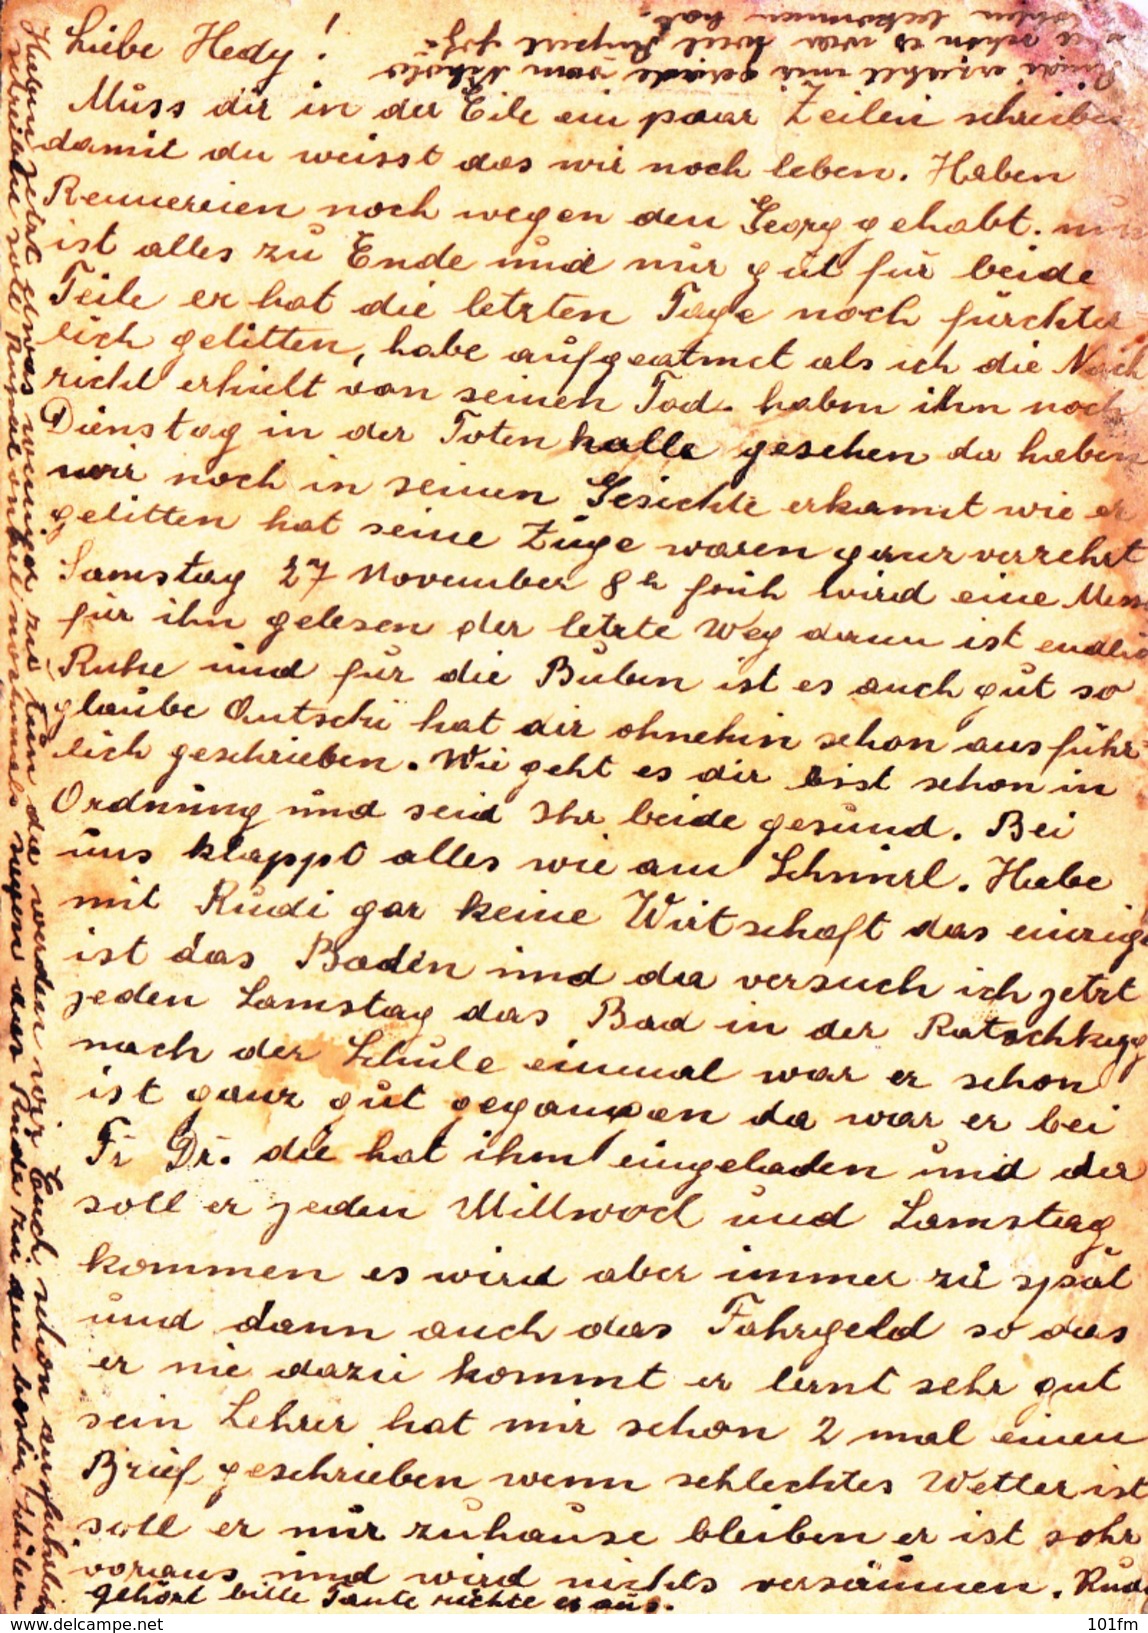 Liebe Hedy!
Muss dir in der Eile ein paar Zeilen schreiben
damit du weisst das wir noch leben. Haben
Rennereien noch wegen den Georg gehabt. nun
ist alles zu Ende und nur gut für beide
Teile er hat die letzten Tage noch fürchter
lich gelitten, habe aufgeatmet als ich die Nach
richt erhielt von seinen Tod. haben ihn noch
Dienstag in der Totenhalle gesehen da haben
wir noch in seinen Gesichte erkannt wie er
gelitten hat seine Züge waren ganz verzehrt
Samstag 27 November 8h früh wird eine Mess
für ihn gelesen der letzte Weg dann ist endlich
Ruhe und für die Buben ist es auch gut so
glaube hat dir ohnehin schon ausführ
lich geschrieben. Wie geht es dir bist schon in
Ordnung und seid Ihr beide gesund. Bei
uns klappt alles wie am Schnürl. Habe
mit Rudi gar keine Wirtschaft das einzige
ist das Baden und da versuch ich jetzt
jeden Samstag das Bad in der Ratschkyg
nach der Schule einmal war er schon
ist ganz gut gegangen da war er bei
Fr Dr. die hat ihm eingeladen und da
soll er jeden Mittwoch und Samstag
kommen es wird aber immer zu spät
und dann auch das Fahrgeld so das
er nie dazu kommt er lernt sehr gut
sein Lehrer hat mir schon 2 mal einen
Brief geschrieben wenn schlechtes Wetter ist
soll er nur zuhause bleiben er ist sehr
voraus und wird nichts versäumen. Rudi
gehört bitte Tante richte es aus.
Haben jetzt etwas weniger zu tun da werden wir Euch schon ausführlich
schreiben sollte Rupert onkel nochmals sagen das Rudi zu den besten Schülern
Rudi erzählt mir gerade vom Nikolo
wie schön es war weil Rupert
bekommen hat.
101fm
www.delcampe.net